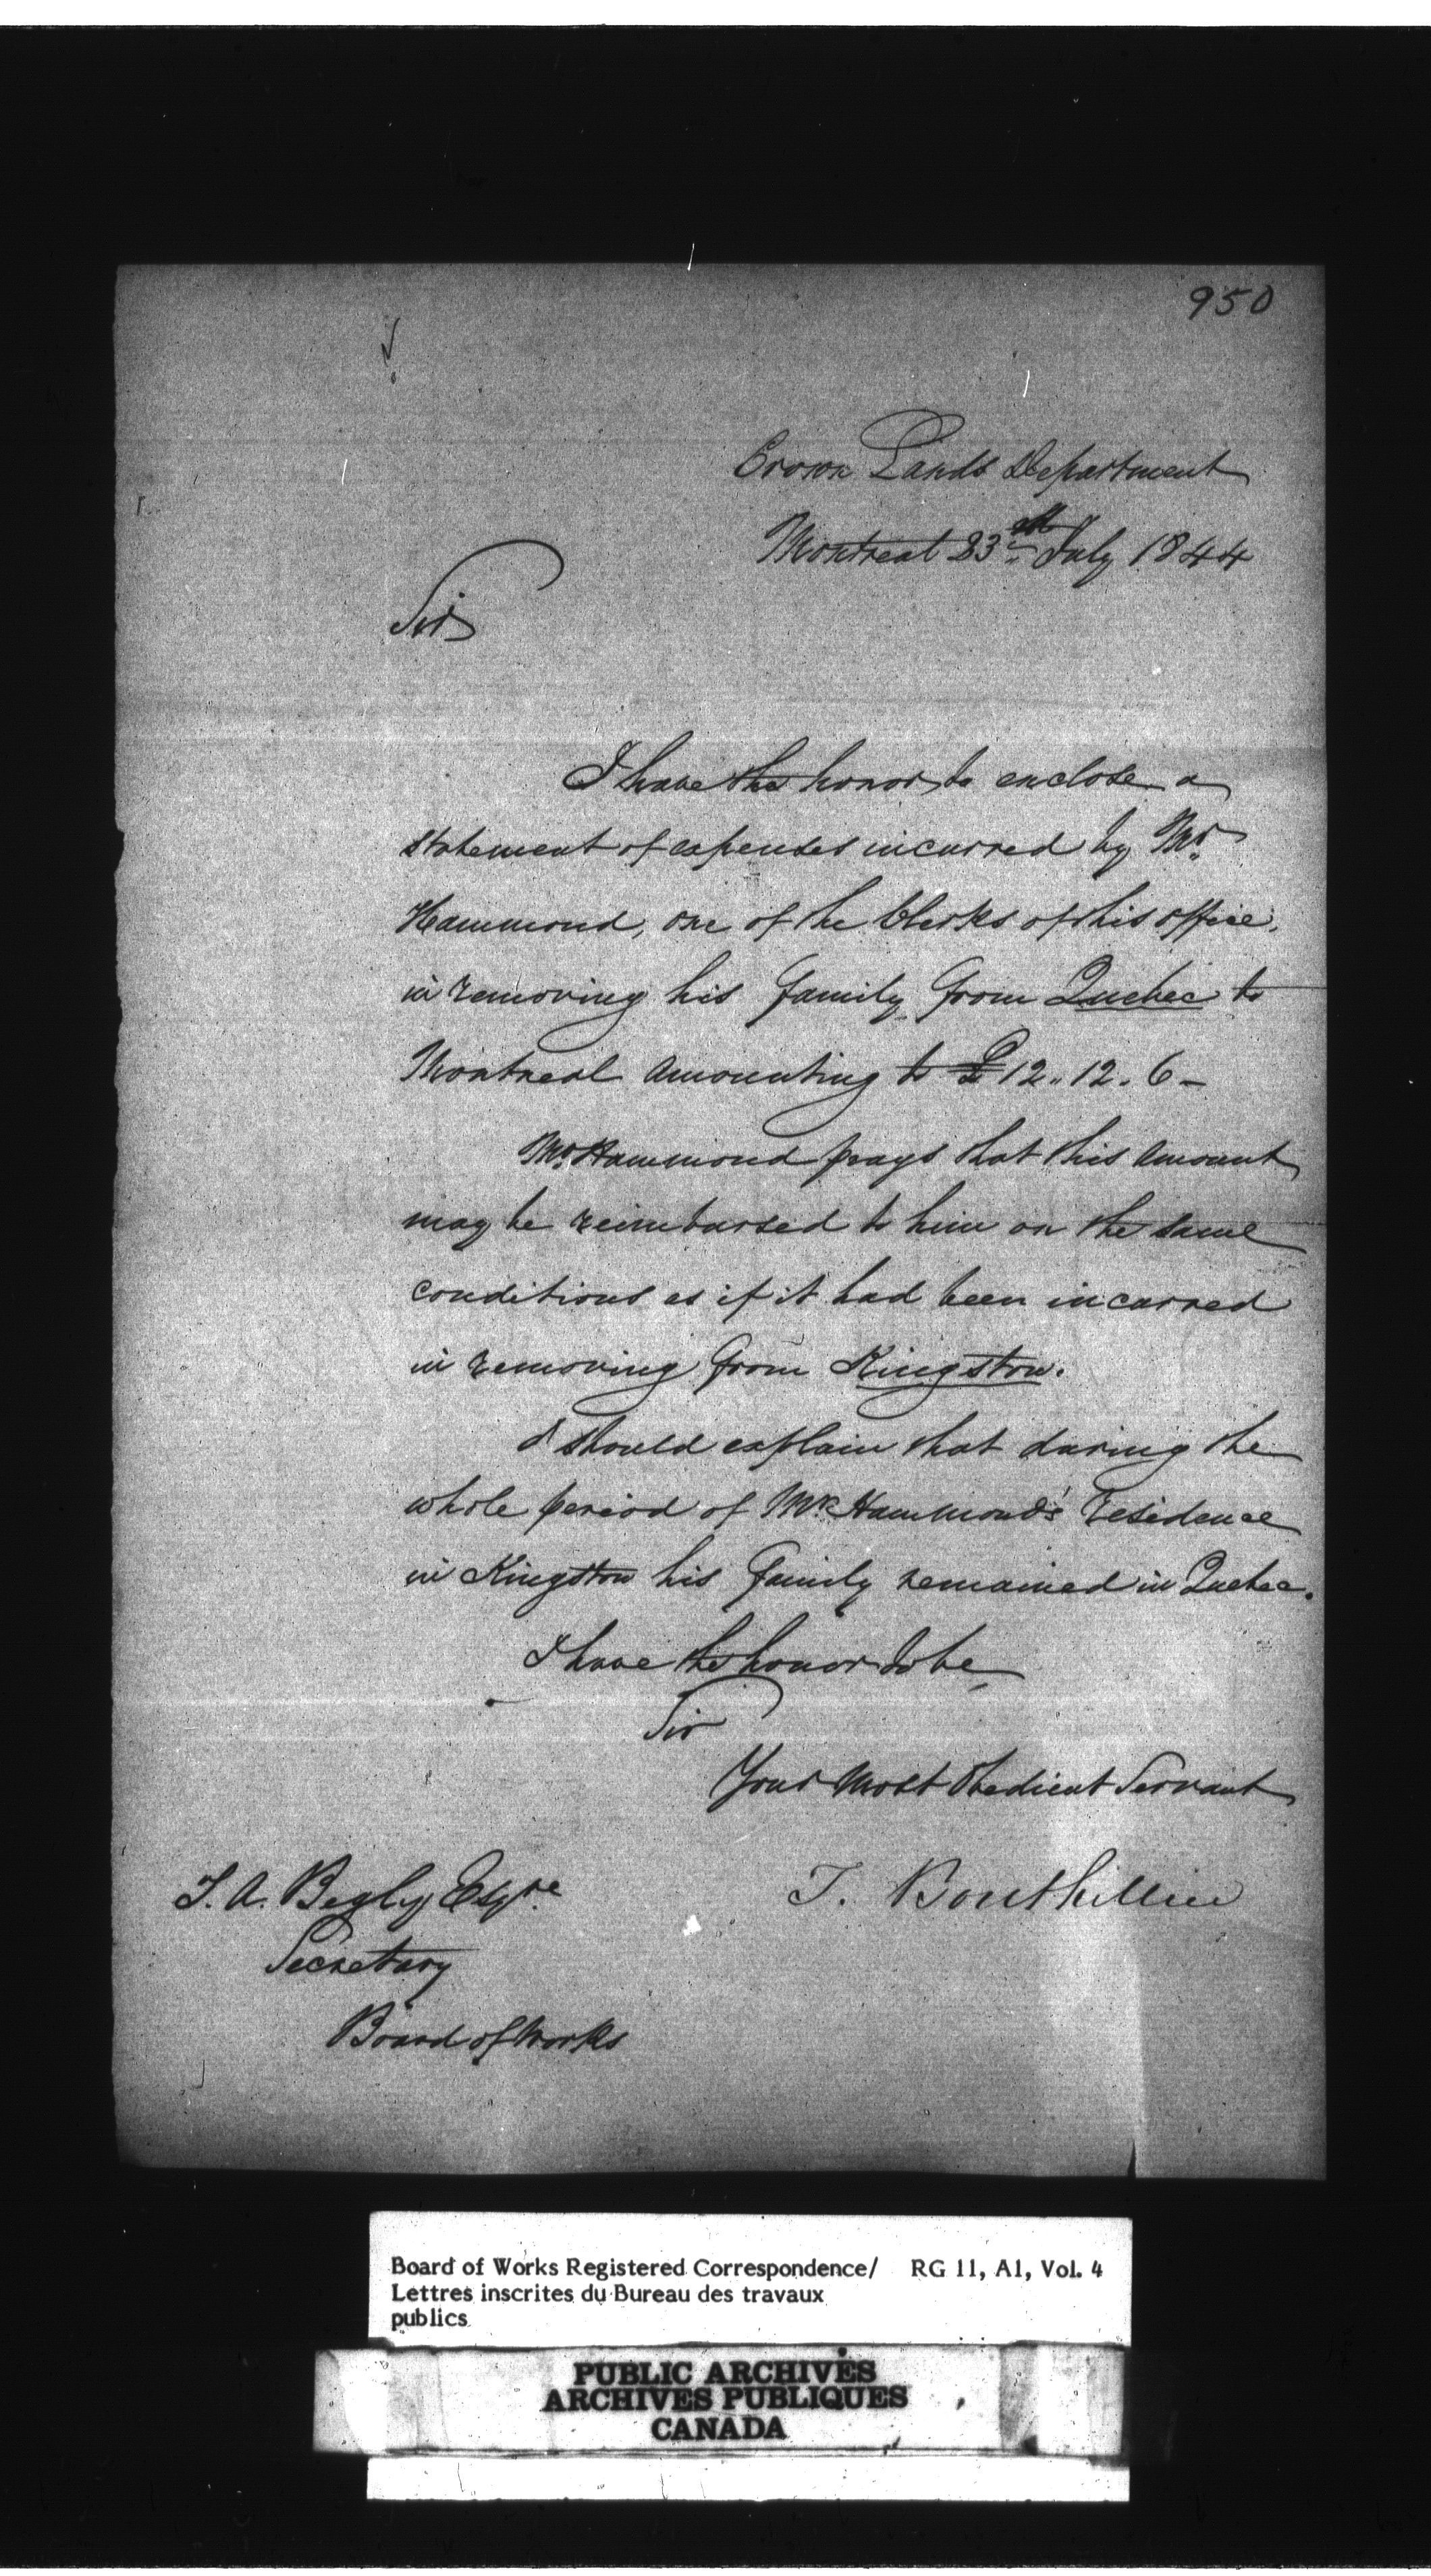 950
Crown Lands Department
Montreal 23rd July 1844
Sir
I have the honor to enclose a
statement of expenses incurred by Mr.
Hammond, one of the Clerks of this office,
in removing his family from Quebec to
Montreal amounting to £12.. 12. 6 –
Mr. Hammond prays that this amount
may be reimbursed to him on the same
conditions as if it had been incurred
in removing from Kingston.
I should explain that during the
whole period of Mr. Hammond's residence
in Kingston his family remained in Quebec.
I have the honor to be
Sir
Your Most Obedient Servant
T. Bouthillier
T. A. Begly Esqre.
Secretary
Board of Works
Board of Works Registered Correspondence/ RG 11, A1, Vol. 4
Lettres inscrites du Bureau des travaux
publics
PUBLIC ARCHIVES
ARCHIVES PUBLIQUES
CANADA